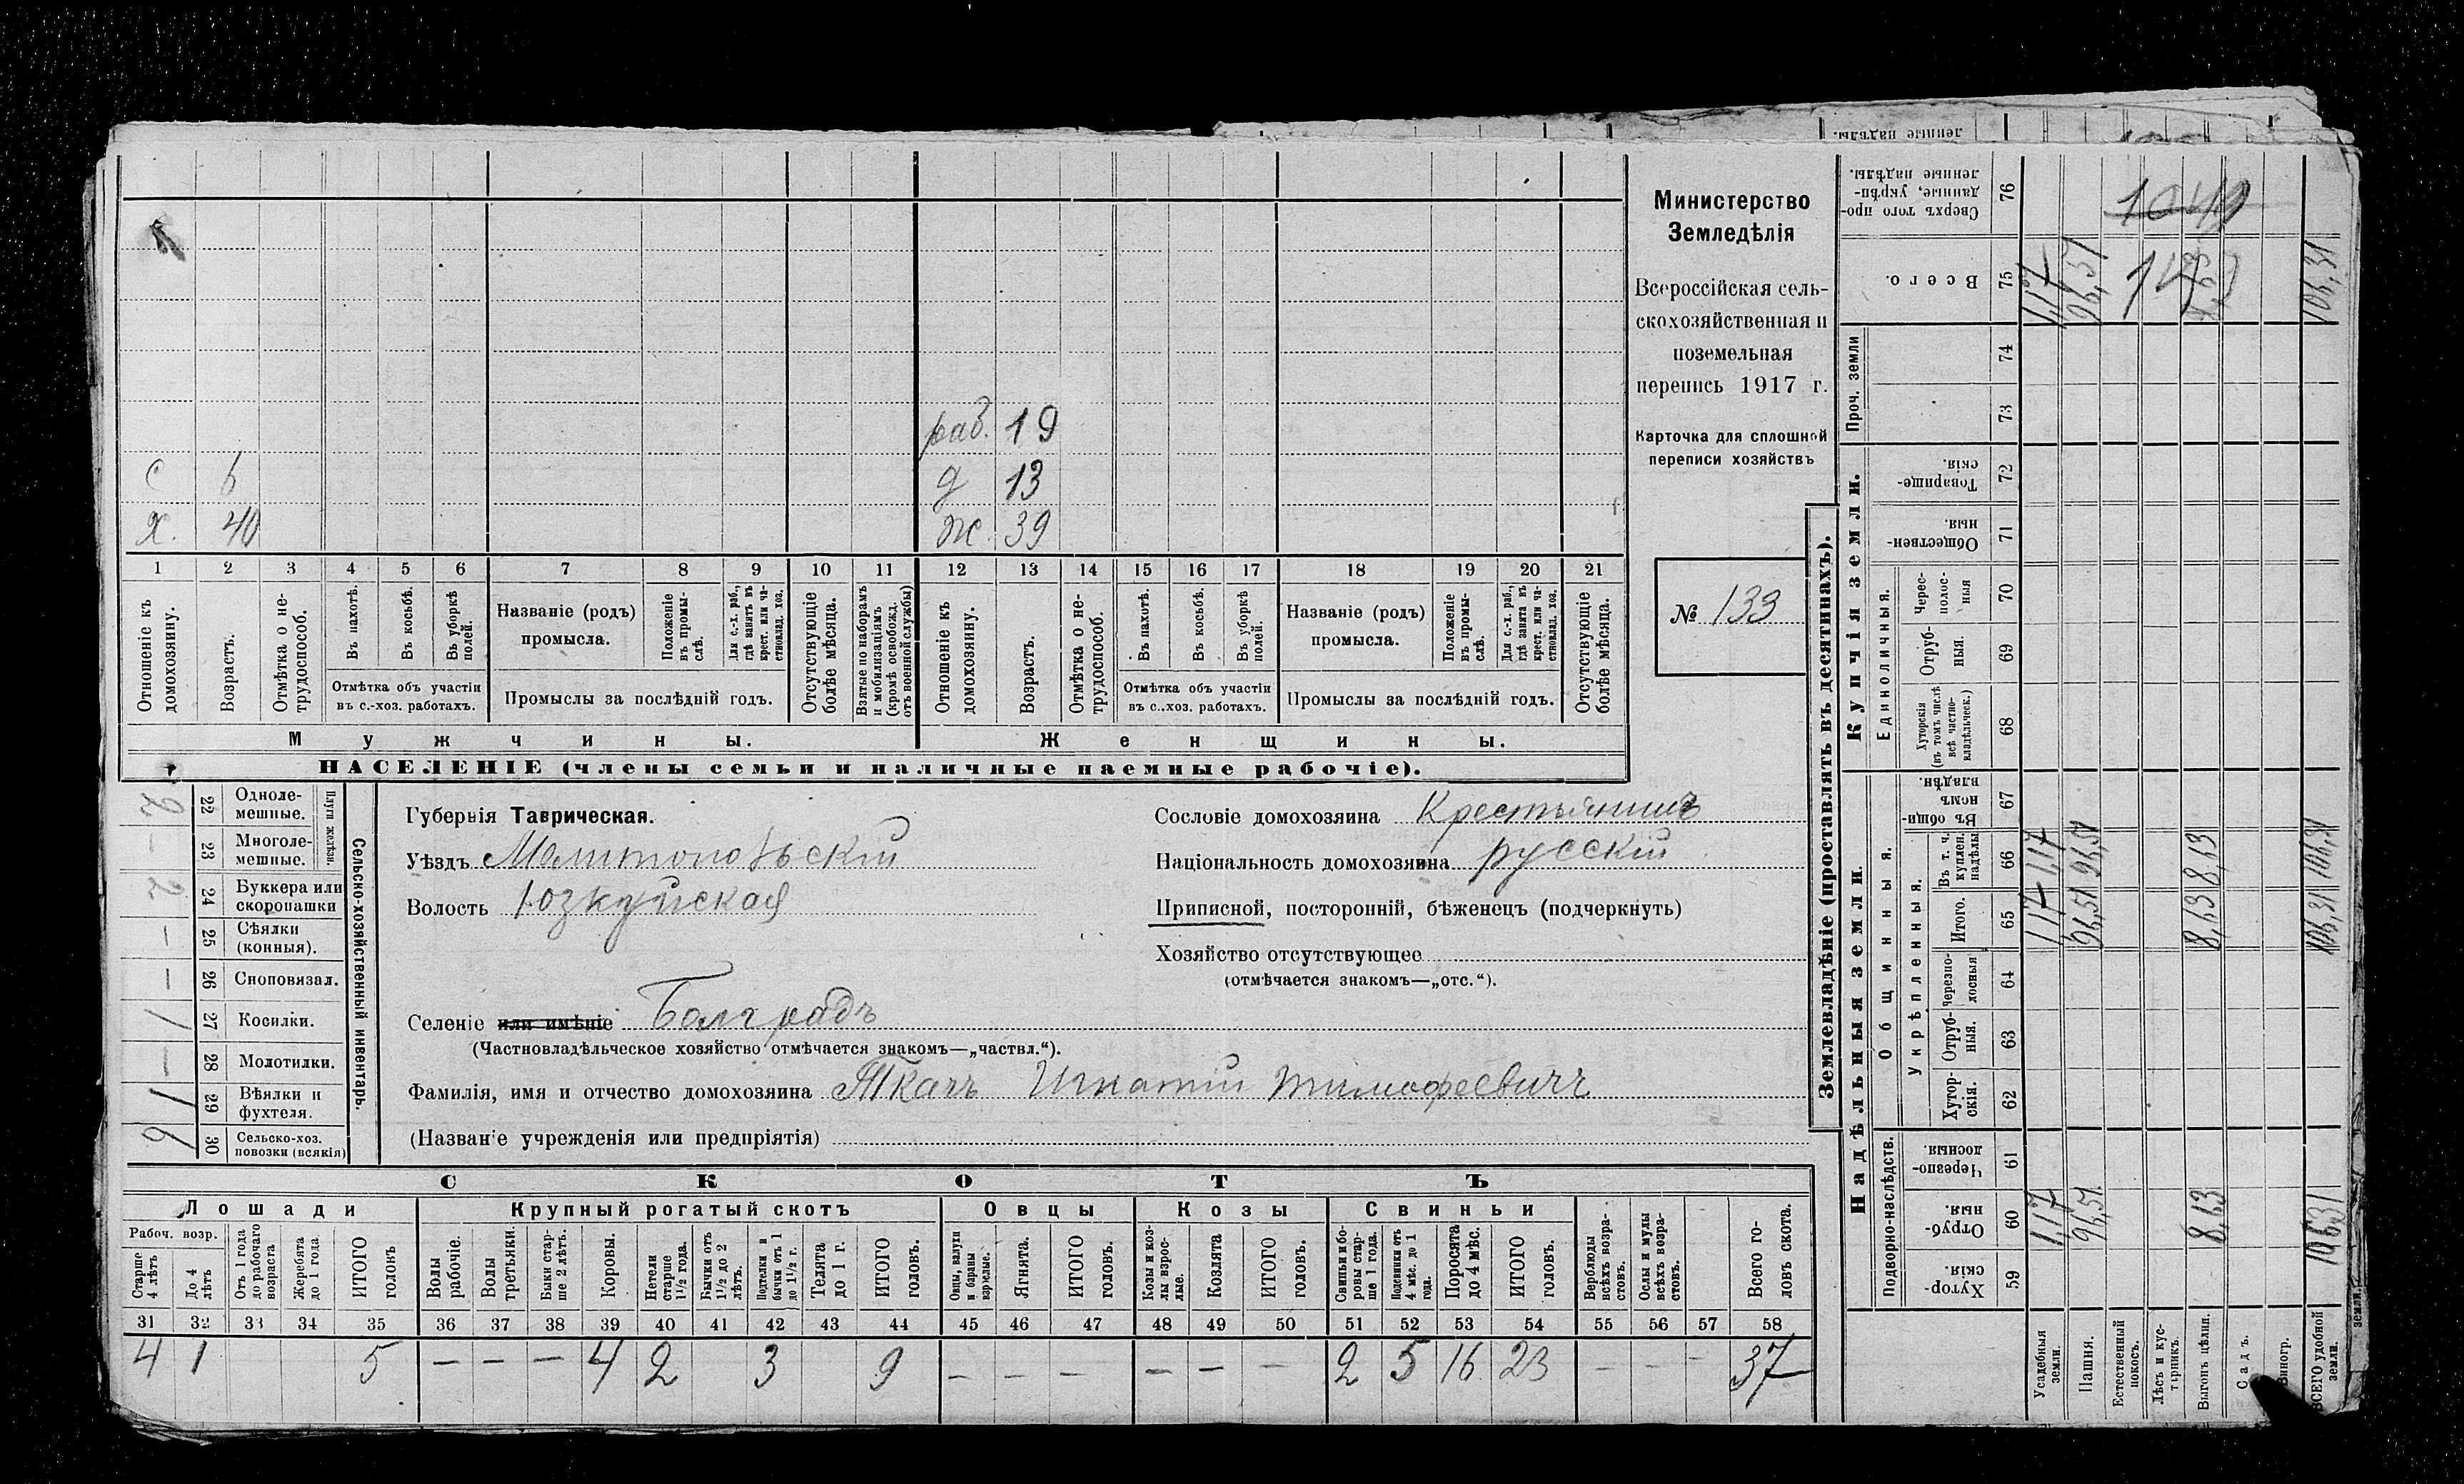 Министерство
Земледѣлія
Всероссійская сель-
скохозяйственная и
поземельная
перепись 1917 г.
Карточка для сплошной
переписи хозяйствъ
№ 133
раб. 19
с 6 д 13
х. 40 ж. 39
1 2 3 4 5 6 7 8 9 10 11 12 13 14 15 16 17 18 19 20 21
Отношеніе къ домохозяину.
Возрастъ.
Отмѣтка о не-трудоспособ.
Въ пахотѣ.
Въ косьбѣ.
Въ уборкѣ полей.
Отмѣтка объ участіи
въ с.-хоз. работахъ.
Названіе (родъ)
промысла.
Положеніе въ промы-слѣ.
Для с.-х. раб., гдѣ занятъ въ крест. или ча-стновлад. хоз.
Промыслы за послѣдній годъ.
Отсутствующіе болѣе мѣсяца.
Взятые по наборамъ и мобилизаціямъ (кромѣ освобожд. отъ военной службы)
Отношеніе къ домохозяину.
Возрастъ.
Отмѣтка о не-трудоспособ.
Въ пахотѣ.
Въ косьбѣ.
Въ уборкѣ полей.
Отмѣтка объ участіи
въ с.-хоз. работахъ.
Названіе (родъ)
промысла.
Положеніе въ промы-слѣ.
Для с.-х. раб., гдѣ занята въ крест. или ча-стновлад. хоз.
Промыслы за послѣдній годъ.
Отсутствующіе болѣе мѣсяца.
Мужчины. Женщины.
НАСЕЛЕНІЕ (члены семьи и наличные наемные рабочіе).
Сельско-хозяйственный инвентарь.
Плуги желѣзн.
2 22 Одноле-мешные.
— 23 Многоле-мешные.
2 24 Буккера или скоропашки
— 25 Сѣялки (конныя).
— 26 Сноповязал.
1 27 Косилки.
— 28 Молотилки.
1 29 Вѣялки и фухтеля.
30 Сельско-хоз. повозки (всякія)
Губернія Таврическая.
Уѣздъ Мелитопольскій
Волость Юзкуйская
Селеніе или имѣніе Болградъ
(Частновладѣльческое хозяйство отмѣчается знакомъ—„частвл.“).
Фамилія, имя и отчество домохозяина Ткачъ Игнатій Тимофеевичъ
(Названіе учрежденія или предпріятія)
Сословіе домохозяина Крестьянинъ
Національность домохозяина русскій
Приписной, посторонній, бѣженецъ (подчеркнуть)
Хозяйство отсутствующее
(отмѣчается знакомъ—„отс.“).
СКОТЪ
Лошади Крупный рогатый скотъ Овцы Козы Свиньи
Рабоч. возр.
Старше 4 лѣтъ
До 4 лѣтъ
Отъ 1 года до рабочаго возраста
Жеребята до 1 года.
ИТОГО головъ
Волы рабочіе.
Волы третьяки.
Быки стар-ше 2 лѣтъ.
Коровы.
Нетели старше 1½ года.
Бычки отъ 1½ до 2 лѣтъ.
Подтелки и бычки отъ 1 до 1½ г.
Телята до 1 г.
ИТОГО головъ.
Овцы, валухи и бараны взрослые.
Ягнята.
ИТОГО головъ.
Козы и коз-лы взрос-лые.
Козлята
ИТОГО головъ.
Свиньи и бо-ровы стар-ше 1 года.
Подсвинки отъ 4 мѣс. до 1 года.
Поросята до 4 мѣс.
ИТОГО головъ.
Верблюды всѣхъ возра-стовъ.
Ослы и мулы всѣхъ возра-стовъ.
Всего го-ловъ скота.
31 32 33 34 35 36 37 38 39 40 41 42 43 44 45 46 47 48 49 50 51 52 53 54 55 56 57 58
4 1 5 — — — 4 2 3 9 — — — — — — 2 5 16 23 — — — 37
Землевладѣніе (проставлять въ десятинахъ).
Купчія земли.
Надѣльныя земли.
Проч. земли
Единоличныя.
Общинныя.
Укрѣпленныя.
Подворно-наслѣдств.
Сверхъ того про-данные, укрѣп-ленные надѣлы. 76 1049
Всего. 75 1,17 96,51 8,63 106,31
74
73
Товарище-скія. 72
Обществен-ныя. 71
Черес-полос-ныя 70
Отруб-ныя. 69
Хуторскія (въ томъ числѣ всѣ частно-владѣльческ.) 68
Въ общи-номъ владѣн. 67
Въ т. ч. куплен. надѣлы 66 1,17 96,51 8,63 106,31
Итого. 65 1,17 96,51 8,63 106,31
Черезпо-лосныя 64
Отруб-ныя. 63
Хутор-скія. 62
Черезпо-лосныя. 61
Отруб-ныя. 60 1,17 96,51 8,63 106,31
Хутор-скія. 59
Усадебныя земли.
Пашня.
Естественный покосъ.
Лѣсъ и кус-тарникъ.
Выгонъ цѣлин.
Садъ.
Виногр.
ВСЕГО удобной земли.
земли.
ленные надѣлы.